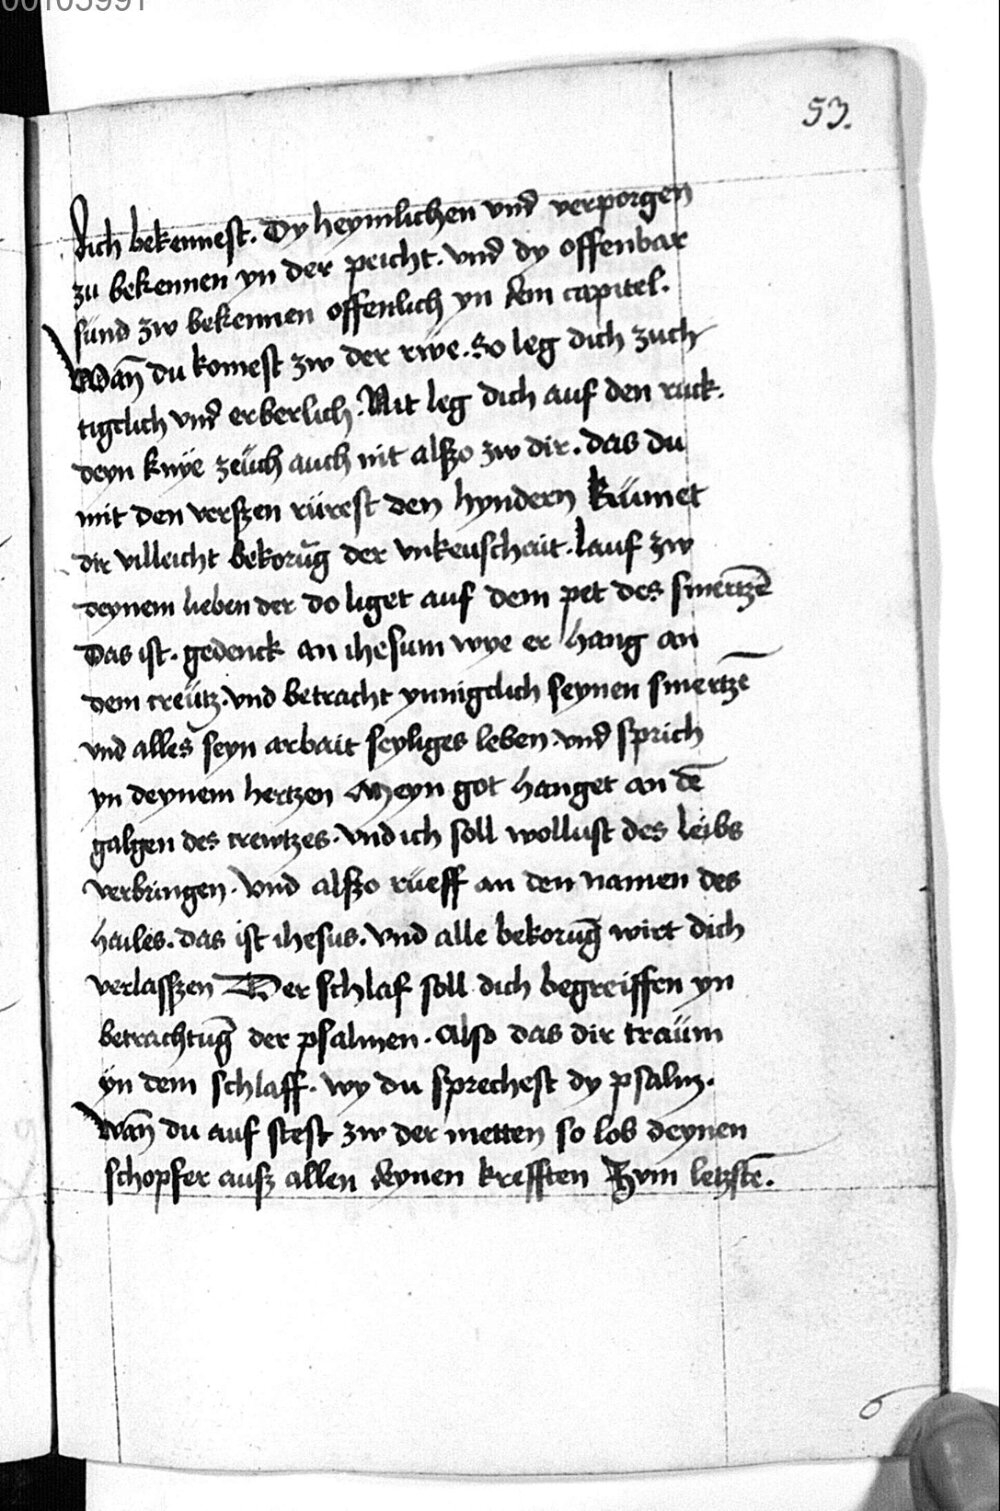 00103991
53.
dich bekennest. Dy heymlichen vnd verporgen
zu bekennen yn der peicht. vnd dy offenbar
sünd zw bekennen offenlich yn dem capitel.
Wañ du komest zw der rwe. So leg dich zuch
tigclich vnd erberlich. Nit leg dich auf den ruck.
deyn knye zeüch auch nit alßo zw dir. das du
mit den verßen rürest den hyndern kümet
dir villeicht bekorūg der vnkeuschait. lauf zw
deynem lieben der do liget auf dem pet des smertzē
Das ist. gedenck an ihesum wye er hang an
dem creütz. vnd betracht ynnigclich seynen smertzē
vnd alles seyn arbait seyliges leben. vnd sprich
yn deynem hertzen Meyn got hanget an dē
galgen des crewtzes. vnd ich soll wollust des leibs
verbringen. Vnd alßo rüeff an den namen des
hailes. das ist ihesus. vnd alle bekorūg wirt dich
verlasszen Der schlaf soll dich begreiffen yn
betrachtūg der psalmen. Also das dir traüm
yn dem schlaff. wy du sprechest dy psalm.
Wañ du auf stest zw der metten so lob deynen
schopfer außz allen deynen krefften Zvm letzstē.
6